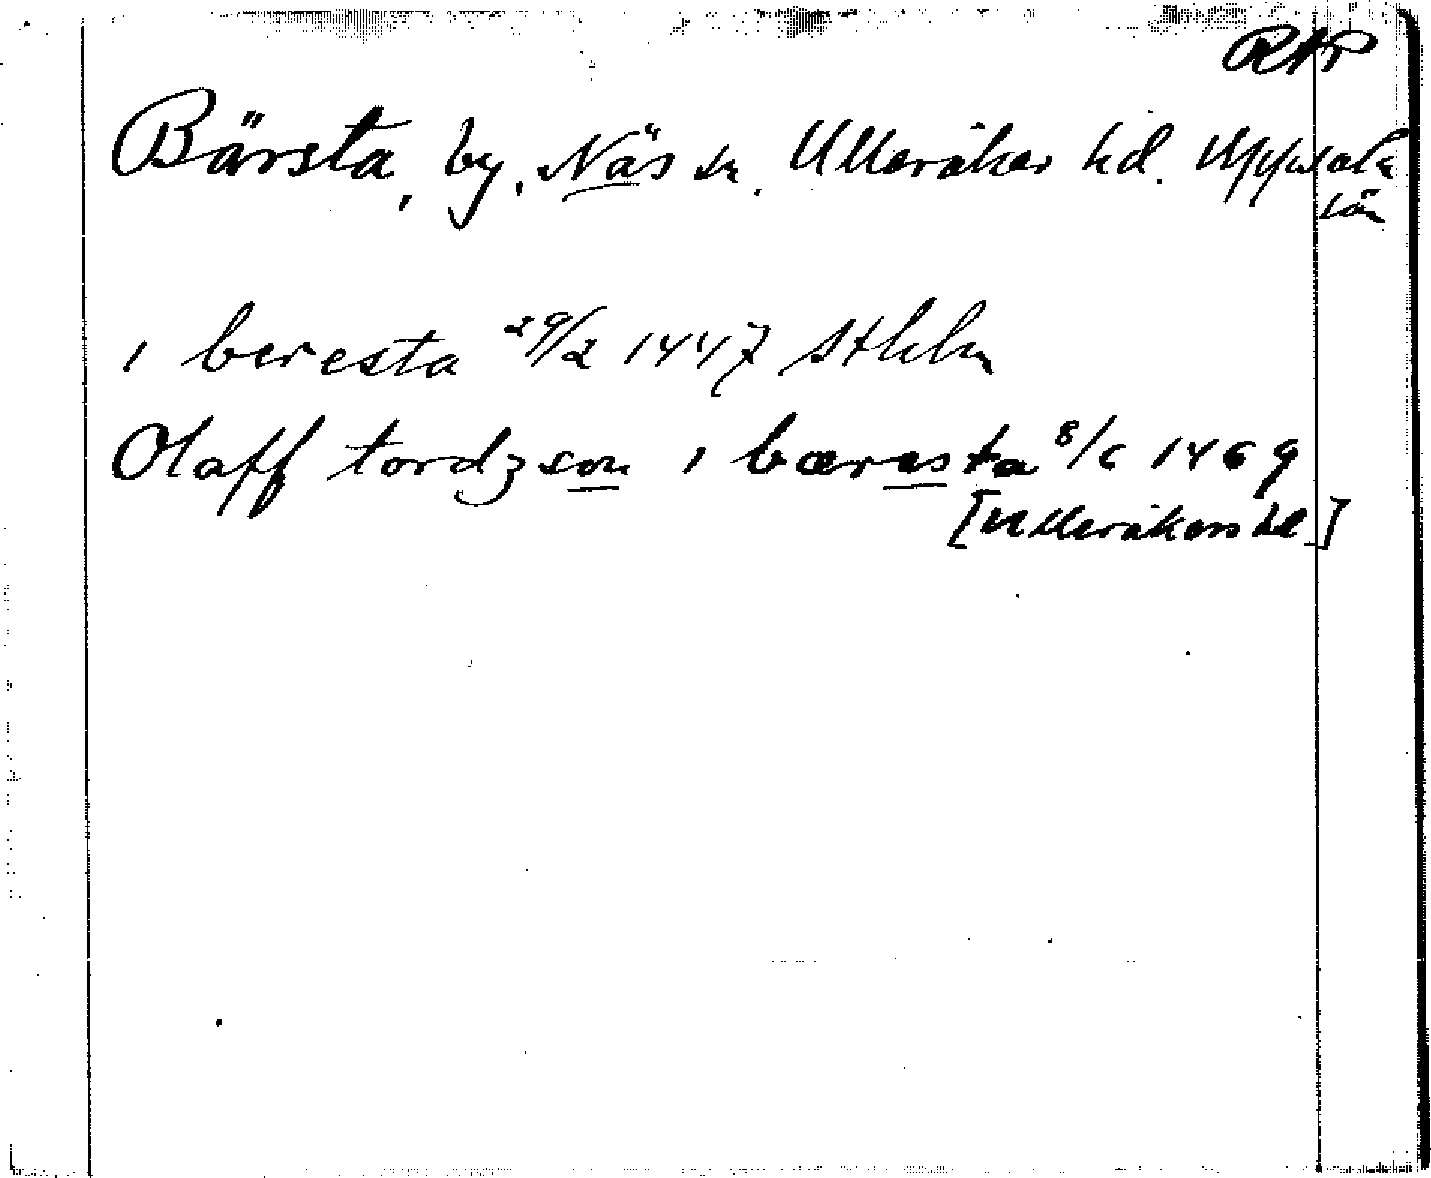 RAP
Bärsta, by, Näs sn. Ulleråker hd. Uppsala
län
i beresta 29/2 1447 Sthlm
Olaff tordzson i bæresta 8/6 1469
[Ulleråkers hd]